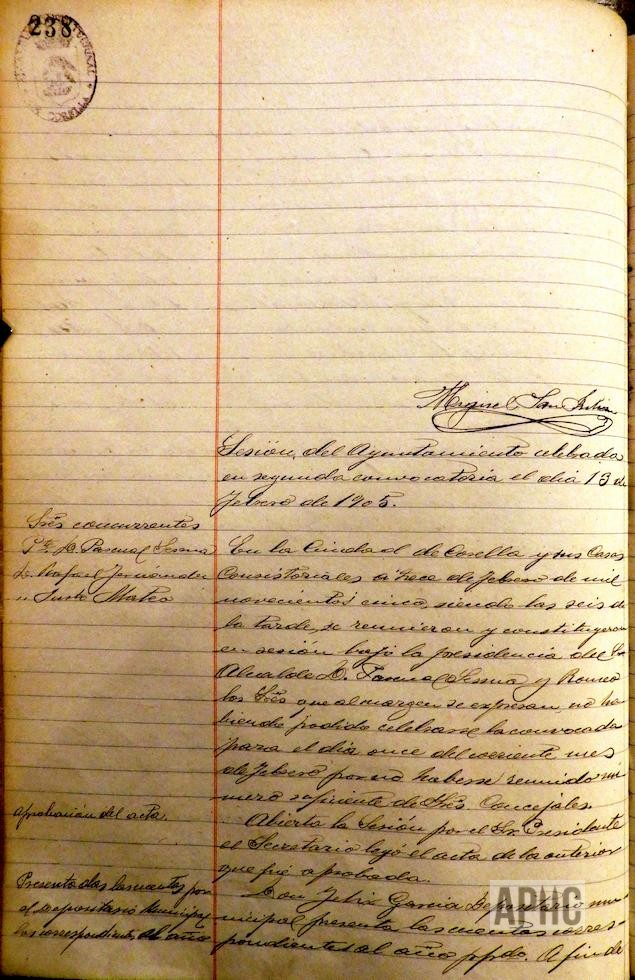 238
CORELLA
Miguel San Julian
Sesión del Ayuntamiento celebrada
en segunda convocatoria el dia 13 de
febrero de 1905.
Sres concurrentes
Pte D. Pascual Sesma
D. Rafael Fernández
,, Justo Mateo
En la Ciudad de Corella y sus Casas
Consistoriales á trece de febrero de mil
novecientos cinco, siendo las seis de
la tarde, se reunieron y constituyeron
en sesión bajo la presidencia del Sr
Alcalde D. Pascual Sesma y Romeo
los Sres que al margen se expresan, no ha
biendo podido celebrarse la convocada
para el dia once del corriente mes
de febrero por no haberse reunido nú
mero suficiente de Sres Concejales.
aprobación del acta.
Abierta la Sesión por el Sr Presidente
el Secretario leyó el acta de la anterior
que fué aprobada.
Presentadas las cuentas por
el depositario municipal
las correspondientes al año
Don Felix Garcia Depositario mu
nicipal presenta las cuentas corres-
pondientes al año ppdo. A fin de
APHC